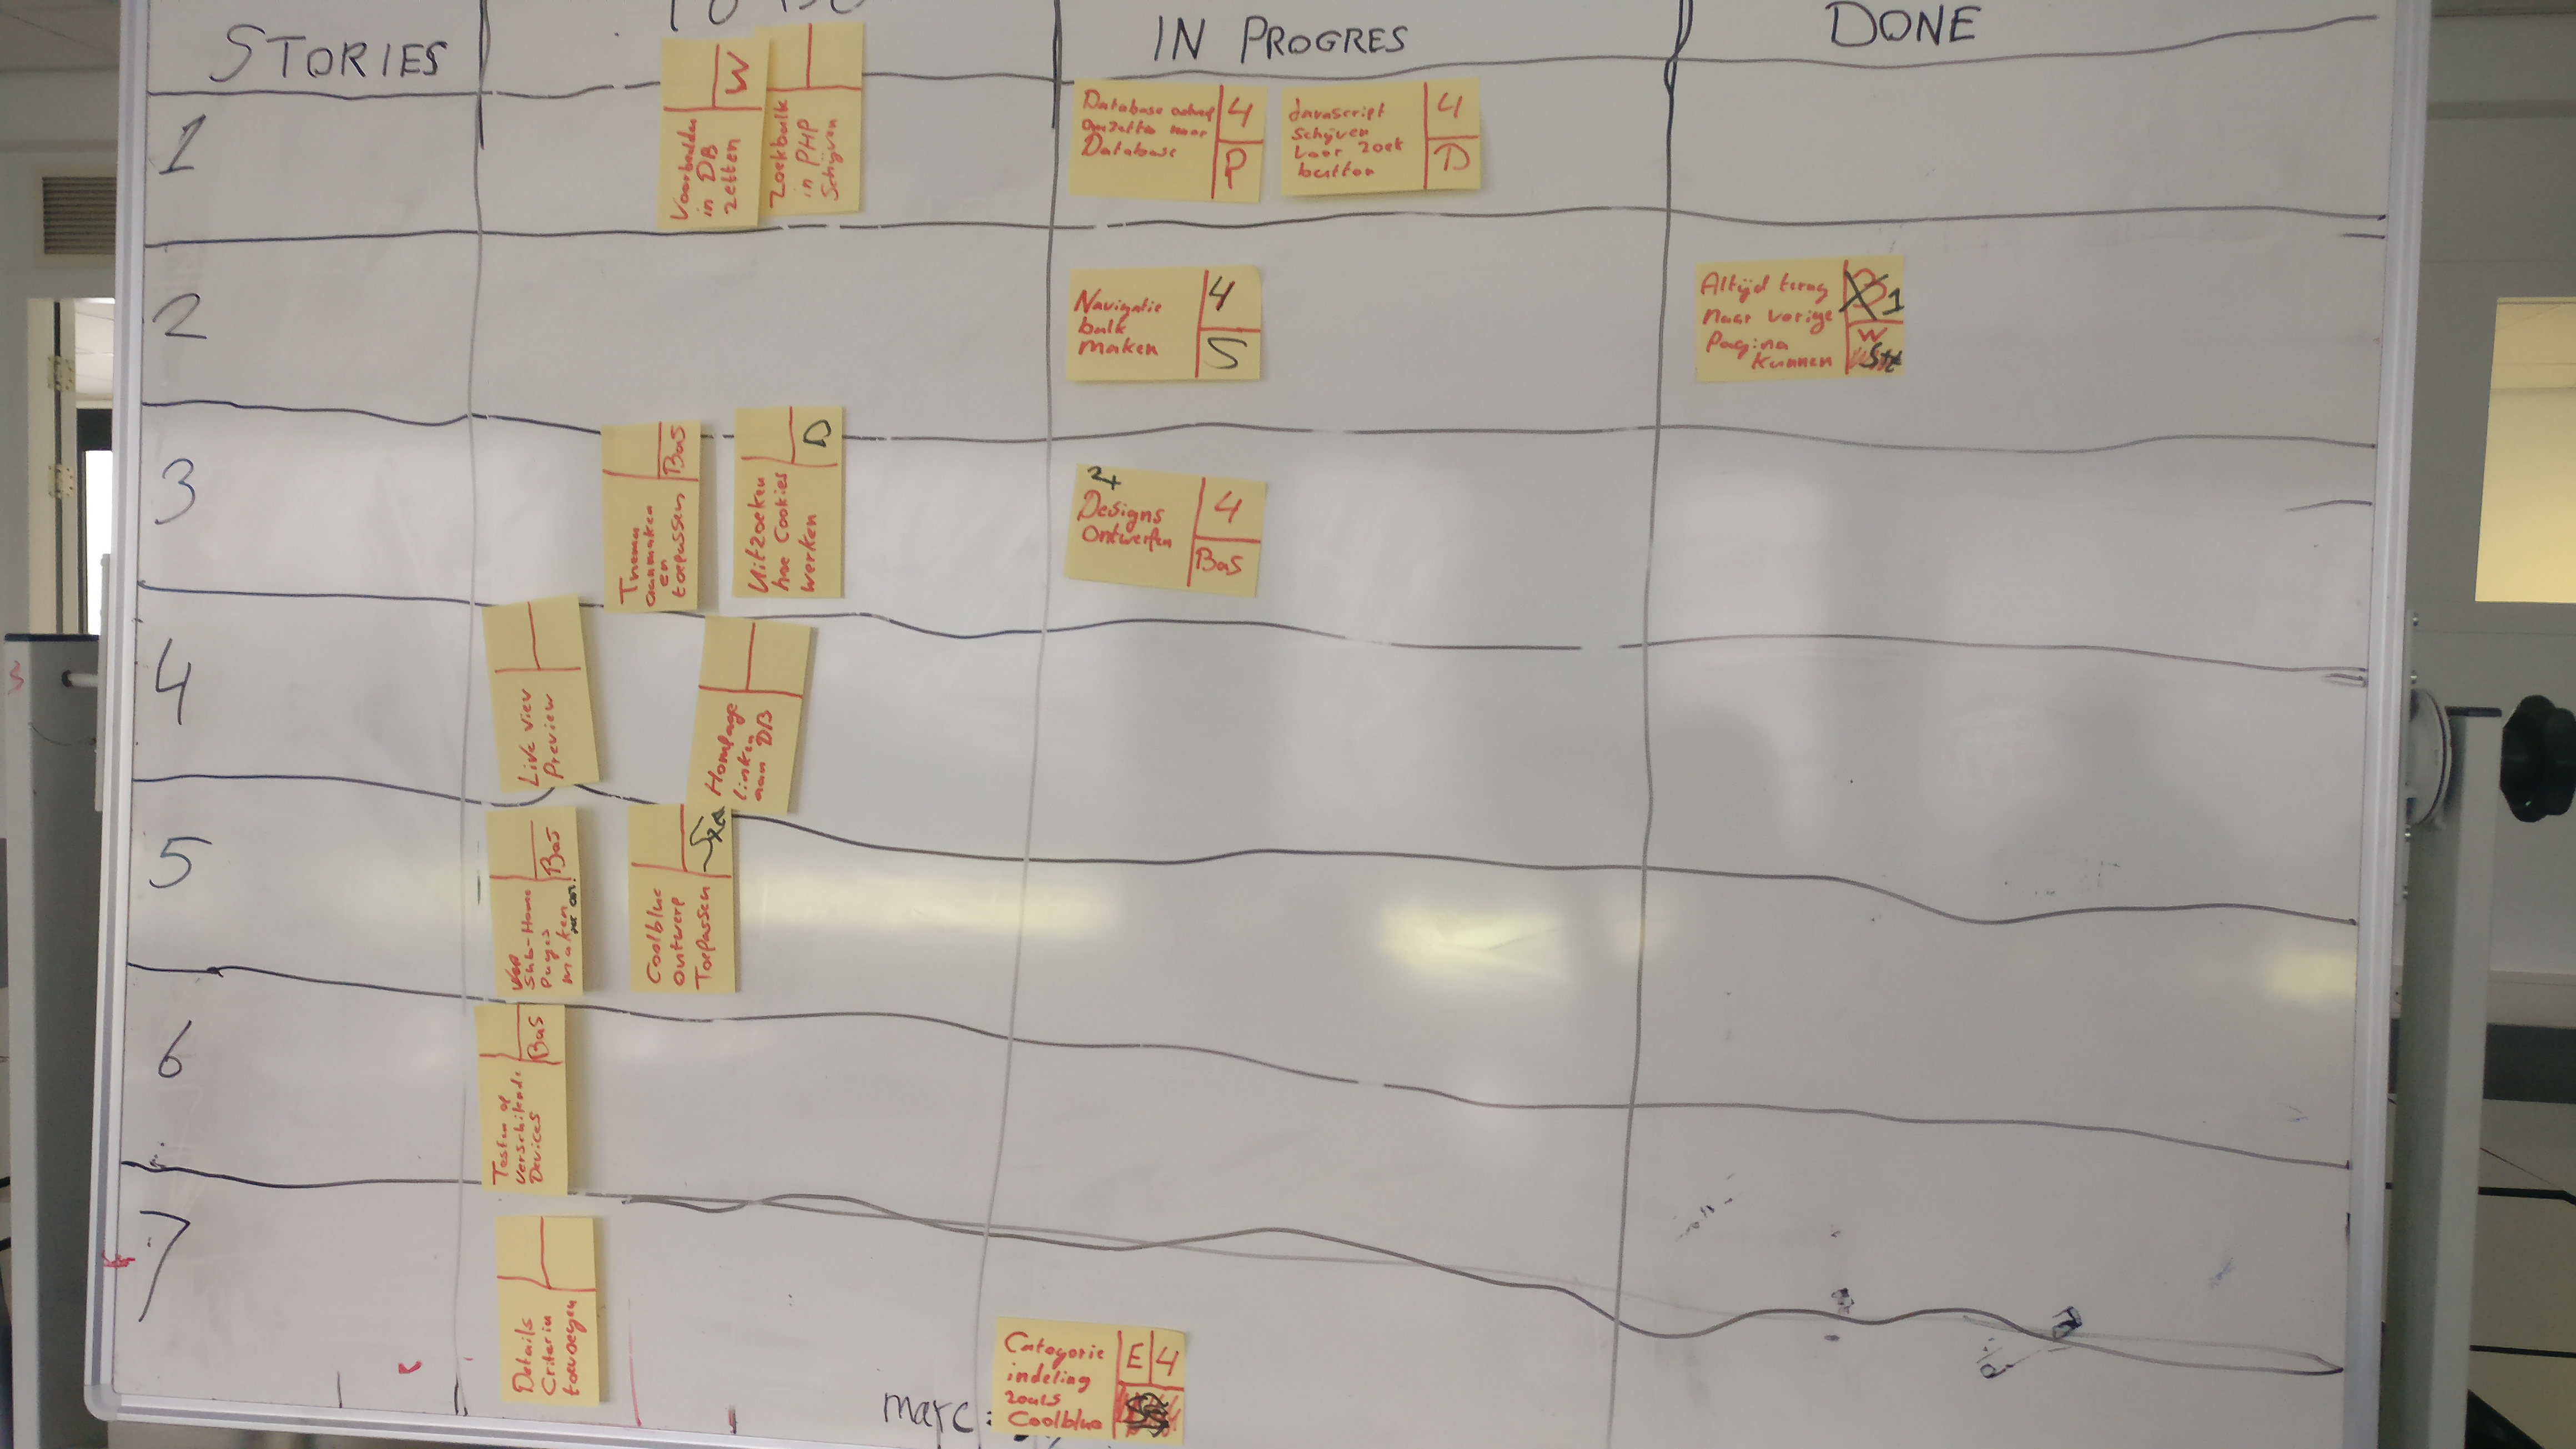 STORIES
TO DO
IN PROGRES
DONE
1
W
Voorbeelden
in DB
zetten
Zoekbalk
in PHP
Schijven
Database
omzetten naar
Database
4
P
Javascript
Schijven
voor zoek
button
4
D
2
Navigatie
balk
maken
4
S
Altijd terug
naar vorige
Pagina
kunnen
1
W
3
Bas
Thema
aanmaken
en
toepassen
D
Uitzoeken
hoe Cookies
werken
Designs
ontwerfen
4
Bas
4
Live view
Preview
Homepage
linken
aan DB
5
Bas
Sub-Home
Pages
maken
Coolblue
ontwerp
Toepassen
6
Bas
Testen op
verschikende
Devices
7
Details
Criteria
toevoegen
marc:
Categorie
indeling
zoals
Coolblue
E 4